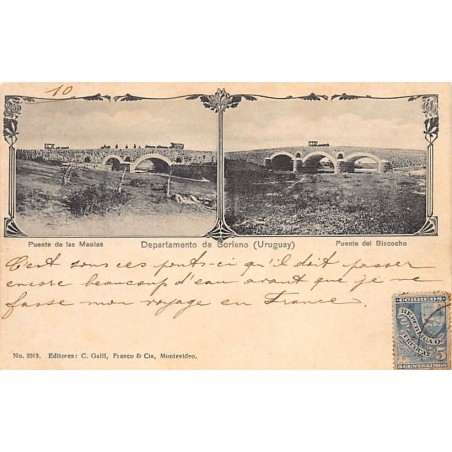 10
Puente de las Maulas
Departamento de Soriano (Uruguay)
Puente del Bizcocho
C'est sous ces ponts-ci qu'il doit passer
encore beaucoup d'eau avant que je ne
fasse mon voyage en France.
CORREOS
REPUBLICA O.
URUGUAY
5
5 CENTESIMOS
No. 2019. Editores: C. Galli, Franco & Cia, Montevideo.